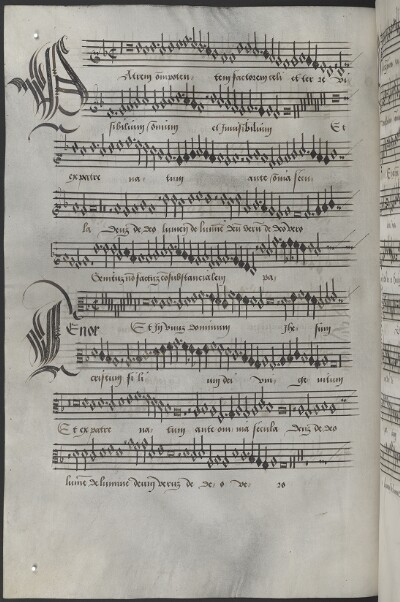 Patrem omnipoten- tem factorem celi et ter re vi
sibilium omnium et Invisibilium Et
ex patre na- tum ante omnia secu-
la deus de deo lumen de lumine deum verum de deo vero
Genitum no factum consubstancialem pa-
Tenor Et In unum dominum Jhe- sum
cristum fi li um dei uni- ge nitum
Et ex patre na- tum ante om- nia secula deus de deo
lumen de lumine deum verum de de- o ve- ro